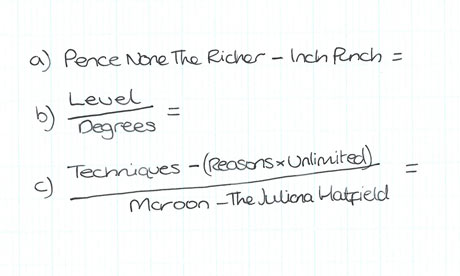 a) Pence None The Richer - Inch Punch =
b) Level / Degrees =
c) Techniques - (Reasons x Unlimited) / Maroon - The Juliana Hatfield =